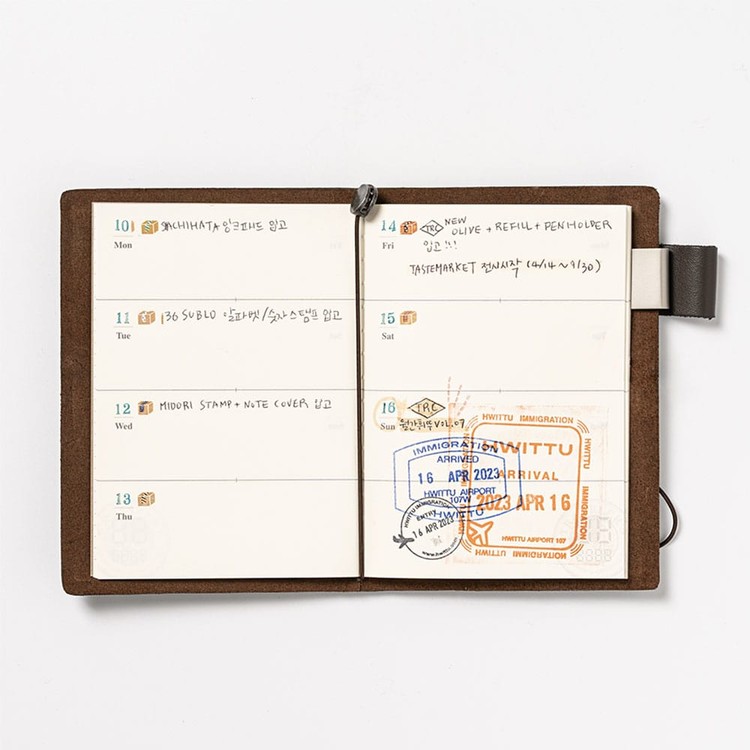 10
Mon
SHACHIHATA 잉크패드 입고
11
Tue
136 SUBLO 알파벳/숫자스탬프 입고
12
Wed
MIDORI STAMP + NOTE COVER 입고
13
Thu
14
Fri
TRC
NEW
OLIVE + REFILL + PENHOLDER
입고!!!
TASTEMARKET 전시시작 (4/14 ~ 9/30)
15
Sat
16
Sun
TRC
월간휘뚜 VOL.07
IMMIGRATION
ARRIVED
16 APR 2023
HWITTU AIRPORT
107W
HWITTU
HWITTU IMMIGRATION
ENTRY
16 APR 2023
www.hwittu.com
HWITTU IMMIGRATION
HWITTU
ARRIVAL
2023 APR 16
HWITTU AIRPORT 107
HWITTU
IMMIGRATION
HWITTU IMMIGRATION